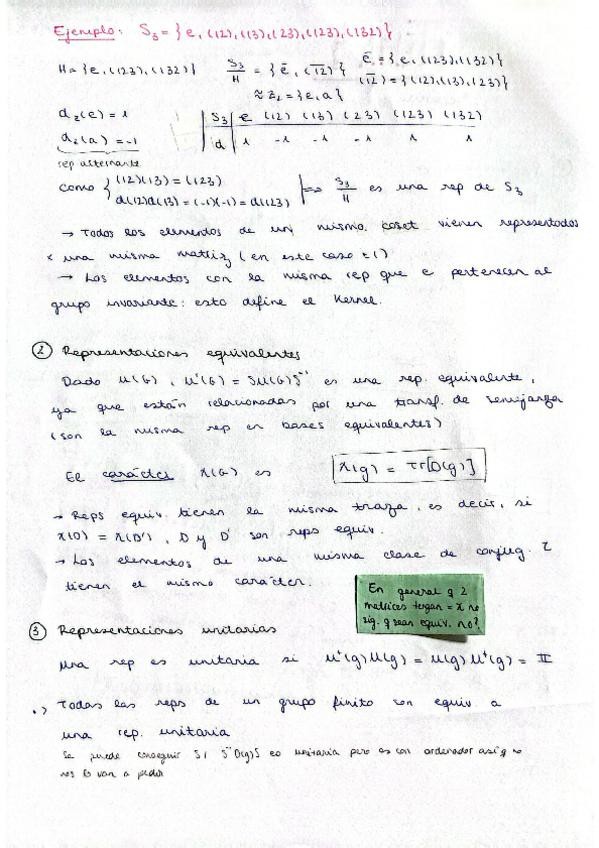 Ejemplo: S₃ = { e, (12), (13), (23), (123), (132) }
H = { e, (123), (132) } S₃/H = { ē, (1̅2̅) } ē = { e, (123), (132) }
(1̅2̅) = { (12), (13), (23) }
≈ Z₂ = { e, a }
d₂(e) = 1
d₂(a) = -1
rep alternante
S₃ e (12) (13) (23) (123) (132)
d 1 -1 -1 -1 1 1
Como { (12)(13) = (123)
d(12)d(13) = (-1)(-1) = d(123) ⟹ S₃/H es una rep de S₃
→ Todos los elementos de un mismo coset vienen representados
x una misma matriz (en este caso ±1)
→ Los elementos con la misma rep que e pertenecen al
grupo invariante: esto define el Kernel.
② Representaciones equivalentes
Dado μ(G), μ'(G) = Sμ(G)S⁻¹ es una rep. equivalente,
ya que están relacionadas por una transf. de semejanza
(son la misma rep en bases equivalentes)
El carácter χ(G) es χ(g) = Tr[D(g)]
→ Reps equiv. tienen la misma traza, es decir, si
χ(D) = χ(D'), D y D' son reps equiv.
→ Los elementos de una misma clase de conjug. ζ
tienen el mismo carácter.
En general q 2
matrices tengan = χ no
sig. q sean equiv. no?
③ Representaciones unitarias
Una rep es unitaria si μ⁺(g)μ(g) = μ(g)μ⁺(g) = II
•) Todas las reps de un grupo finito son equiv. a
una rep. unitaria
Se puede conseguir S / S⁻¹D(g)S es unitaria pero es con ordenador así q no
nos lo van a pedir